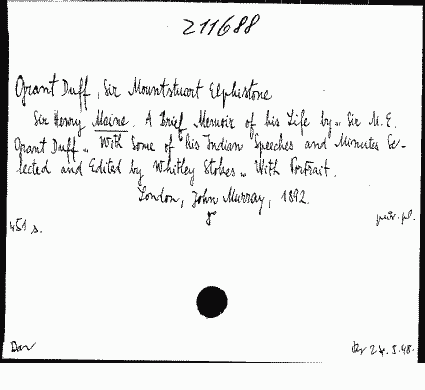 211688
Grant Duff, Sir Mountstuart Elphistone
Sir Henry Maine. A Brief Memoir of his Life by .. Sir M. E.
Grant Duff .. With Some of his Indian Speeches and Minutes Se-
lected and Edited by Whitley Stokes .. With Portrait.
London, John Murray, 1892.
8°
451 s.
Dar
24.3.48.